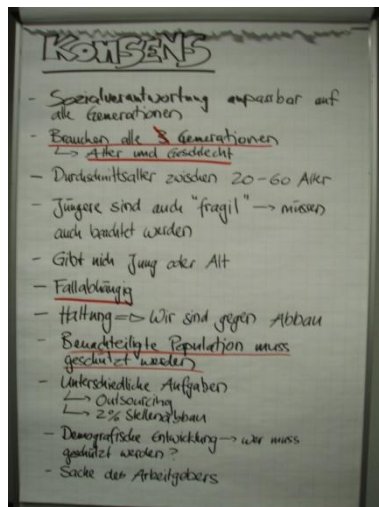 KONSENS
- Sozialverantwortung anpassbar auf
alle Generationen
- Brauchen alle 3 Generationen
↳ Alter und Geschlecht
- Durchschnittsalter zwischen 20-60 Alter
- Jüngere sind auch "fragil" → müssen
auch beachtet werden
- Gibt nich Jung oder Alt
- Fallabhängig
- Haltung ⇨ Wir sind gegen Abbau
- Benachteiligte Population muss
geschützt werden
- Unterschiedliche Aufgaben
↳ Outsourcing
↳ 2% Stellenabbau
- Demografische Entwicklung → wer muss
geschützt werden?
- Sache des Arbeitgebers